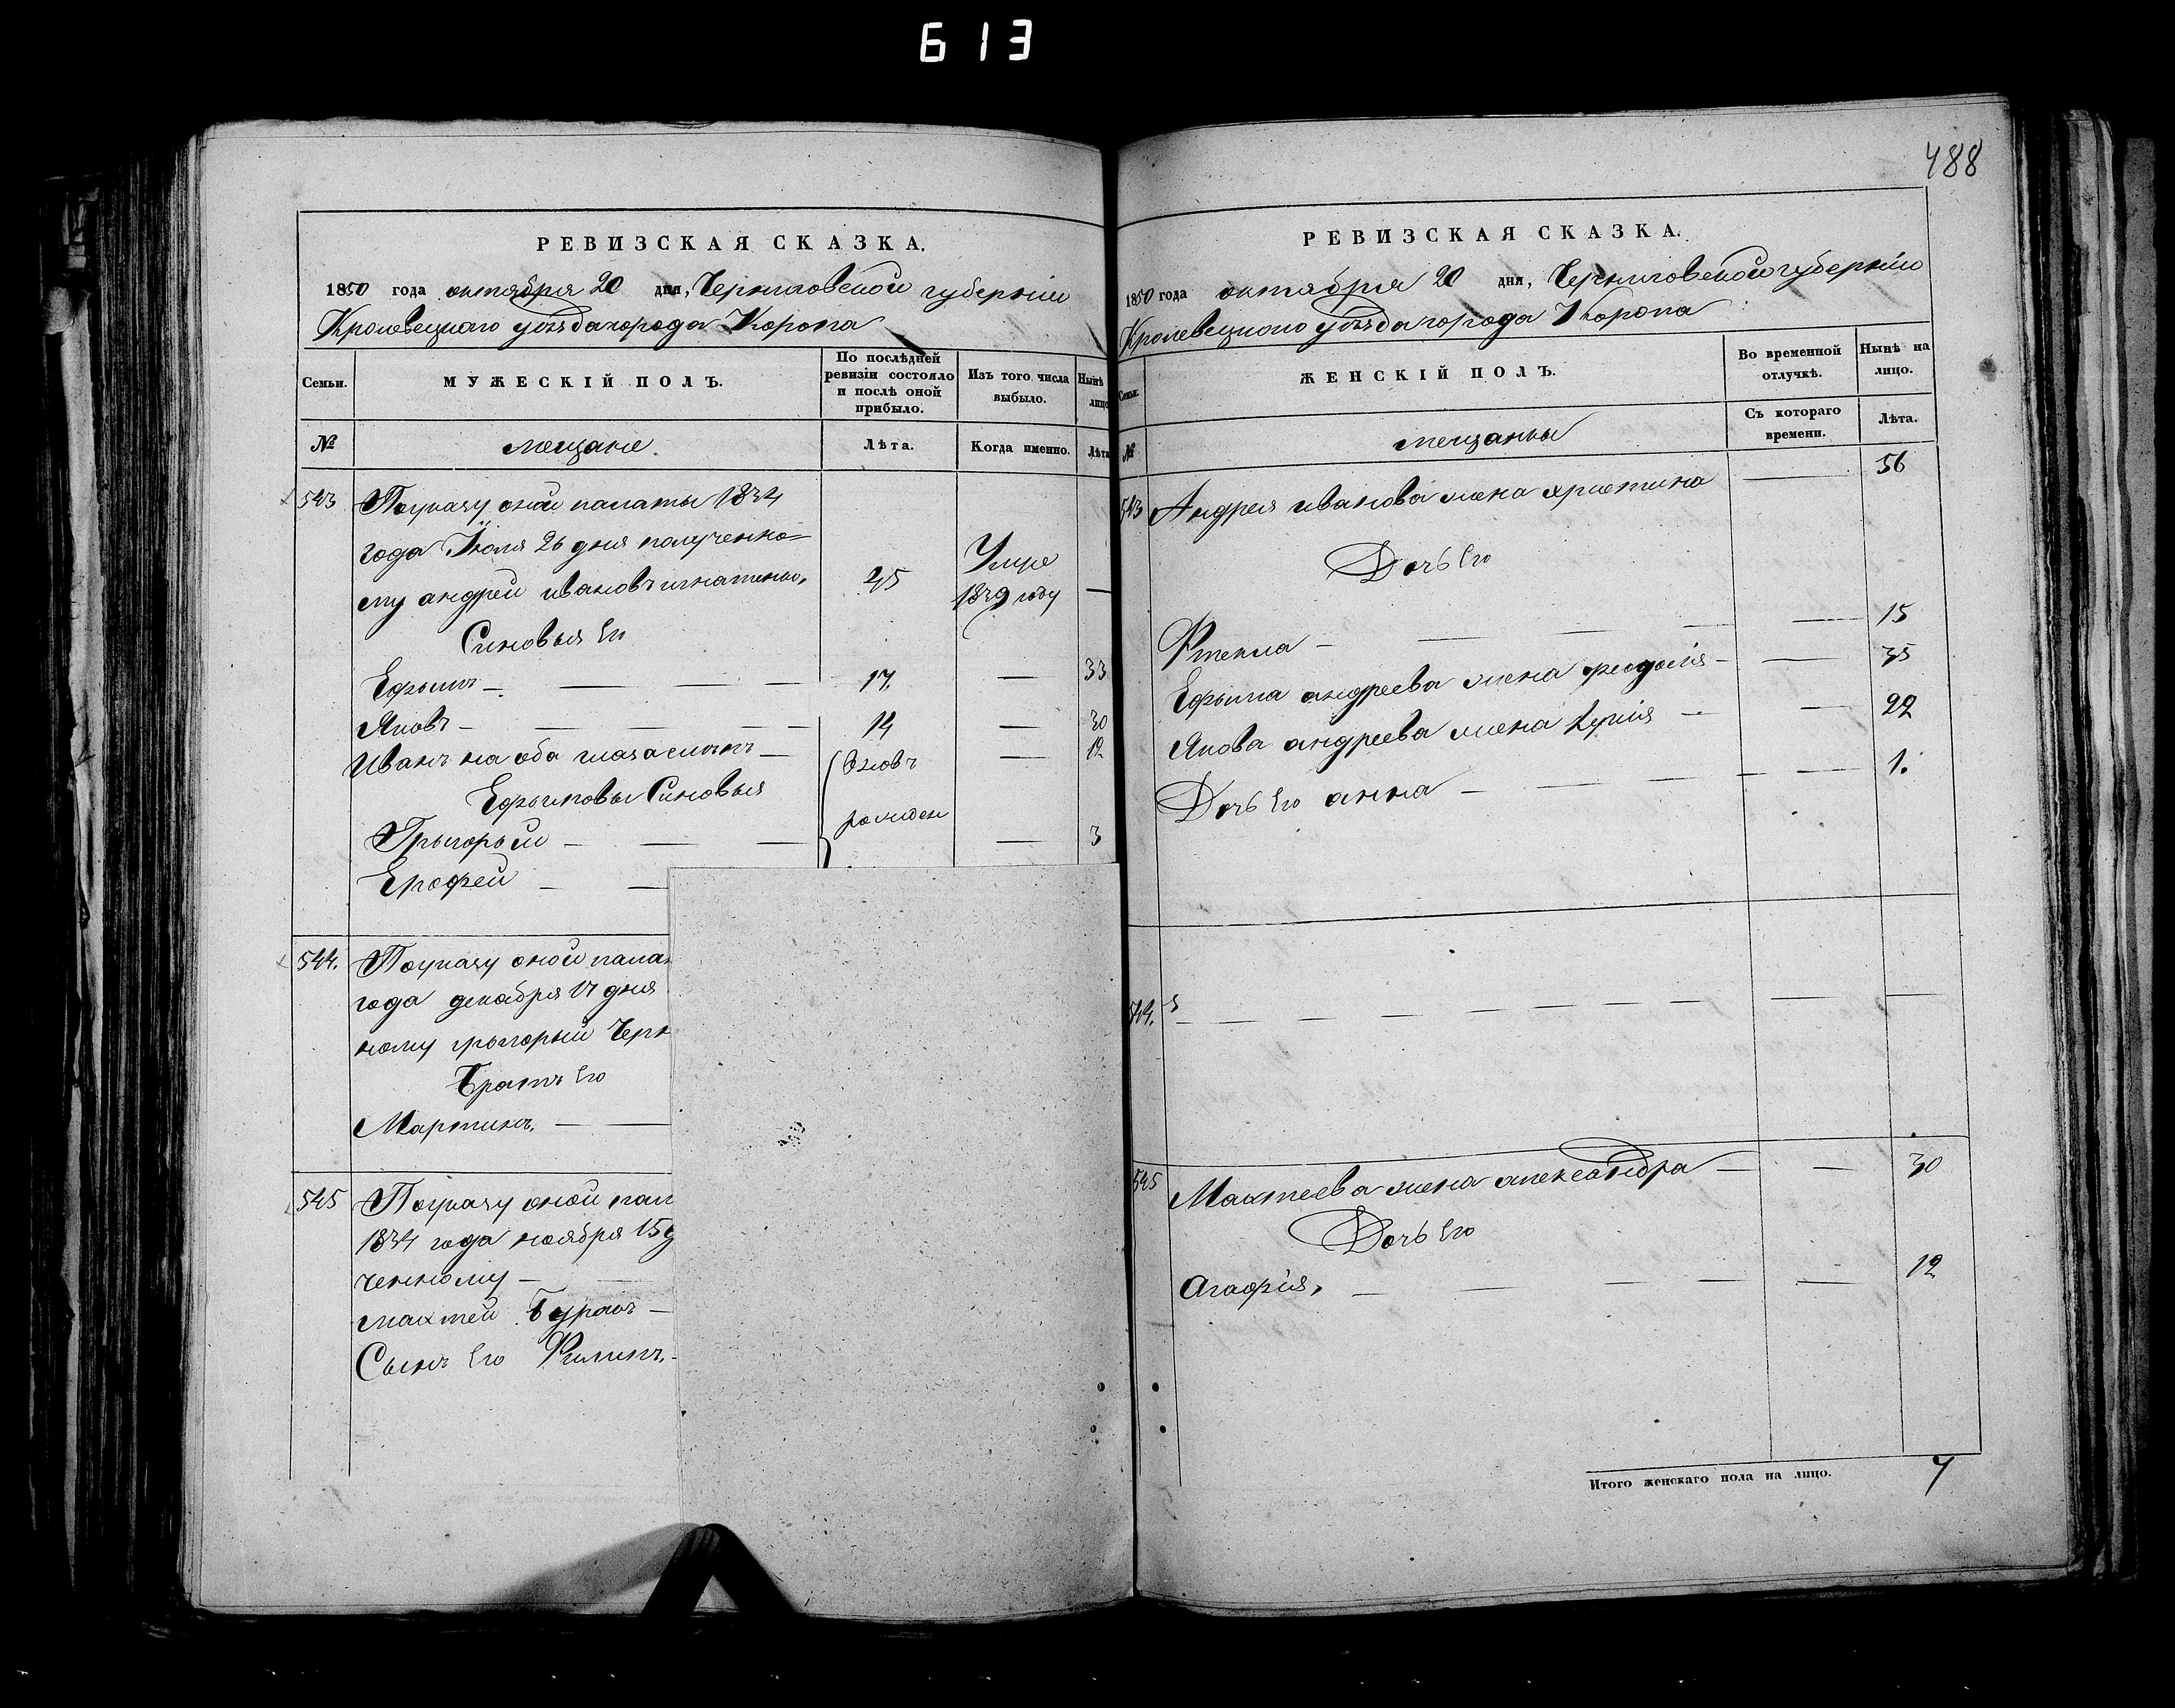 613
488
РЕВИЗСКАЯ СКАЗКА.
1850 года октября 20 дня, Черниговской губернiи
Кролевецкаго уѣзда города Коропа
Семьи.
МУЖЕСКIЙ ПОЛЪ.
По послѣдней ревизiи состояло и послѣ оной прибыло.
Изъ того числа выбыло.
Нынѣ лицо
№
мещане.
Лѣта.
Когда именно.
Лѣта
543 Поуказу оной палаты 1834
года Iюля 26 дня полученно=
му андрей ивановъ 45 Умре 1839 году —
Синовья Его
Ефимъ — 17. — 33
Яковъ — 14 — 30
Иванъ на оба глаза — вновь — 12
Ефимовы Синовья
рожден
Григорый — 3
Ерофей —
544. Поуказу оной пала
года декабря 17 дня
ному григорый Черн
Братъ Его
Мартинъ. —
545 Поуказу оной пал
1834 года ноября 15 д
ченному —
махтей Буракъ —
Сынъ Его Филипъ. -
РЕВИЗСКАЯ СКАЗКА.
1850 года октября 20 дня, Черниговской губернiи
Кролевецкаго уѣзда города Коропа
Семьи.
ЖЕНСКIЙ ПОЛЪ.
Во временной отлучкѣ.
Нынѣ на лицо.
№
мещанки
Съ котораго времени.
Лѣта.
543 Андрея иванова жена христина — 56
Дочь Его
Фтекла — 15
Ефыма андреева жена феодосiя — 35
Якова андреева жена — 22
Дочь Его анна — 1.
544.
545 Махтеева жена александра — 30
Дочь Его
Агафiя, — 12
Итого женскаго пола на лицо. 7